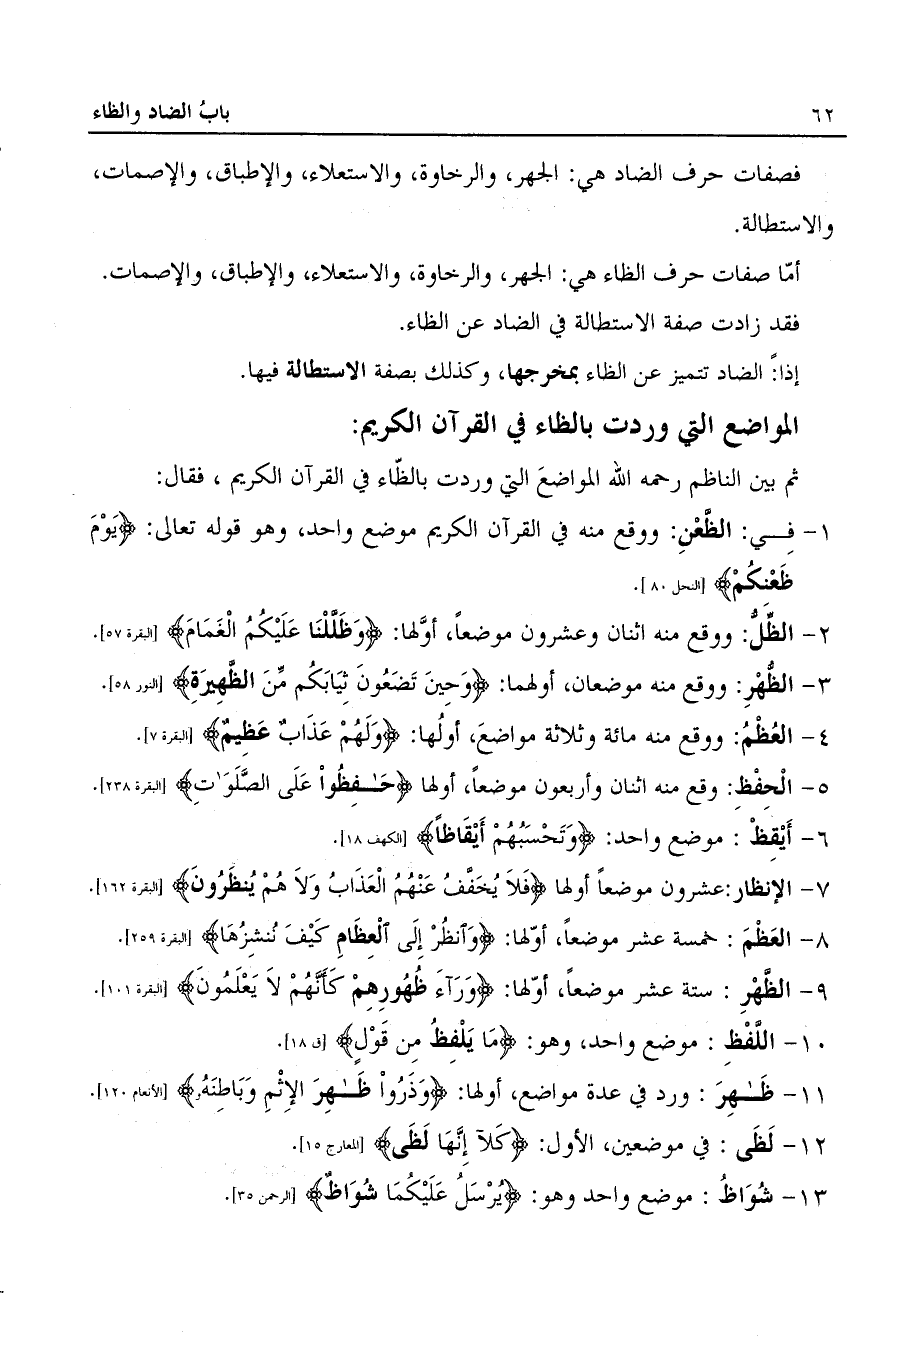 ٦٢ بابُ الضاد والظاء
فصفات حرف الضاد هي: الجهر، والرخاوة، والاستعلاء، والإطباق، والإصمات،
والاستطالة.
أمّا صفات حرف الظاء هي: الجهر، والرخاوة، والاستعلاء، والإطباق، والإصمات.
فقد زادت صفة الاستطالة في الضاد عن الظاء.
إذاً: الضاد تتميز عن الظاء بمخرجها، وكذلك بصفة الاستطالة فيها.
المواضع التي وردت بالظاء في القرآن الكريم:
ثم بين الناظم رحمه الله المواضعَ التي وردت بالظّاء في القرآن الكريم ، فقال:
١- فــي: الظَّعْنِ: ووقع منه في القرآن الكريم موضع واحد، وهو قوله تعالى: ﴿يَوْمَ
ظَعْنِكُمْ﴾ [النحل ٨٠].
٢- الظِّلُّ: ووقع منه اثنان وعشرون موضعاً، أوَّلها: ﴿وَظَلَّلْنَا عَلَيْكُمُ الْغَمَامَ﴾ [البقرة ٥٧].
٣- الظُّهْرِ: ووقع منه موضعان، أولهما: ﴿وَحِينَ تَضَعُونَ ثِيَابَكُم مِّنَ الظَّهِيرَةِ﴾ [النور ٥٨].
٤- العُظْمُ: ووقع منه مائة وثلاثة مواضعَ، أولُها: ﴿وَلَهُمْ عَذَابٌ عَظِيمٌ﴾ [البقرة ٧].
٥- الْحِفْظِ: وقع منه اثنان وأربعون موضعاً، أولها ﴿حَـٰفِظُواْ عَلَى الصَّلَوَٰتِ﴾ [البقرة ٢٣٨].
٦- أَيْقِظْ : موضع واحد: ﴿وَتَحْسَبُهُمْ أَيْقَاظاً﴾ [الكهف ١٨].
٧- الإنظار:عشرون موضعاً أولها ﴿فَلاَ يُخَفَّفُ عَنْهُمُ الْعَذَابُ وَلاَ هُمْ يُنظَرُونَ﴾ [البقرة ١٦٢].
٨- العَظْمَ : خمسة عشر موضعاً، أوّلها: ﴿وَٱنظُرْ إِلَى ٱلْعِظَامِ كَيْفَ نُنشِزُهَا﴾ [البقرة ٢٥٩].
٩- الظَّهْرِ : ستة عشر موضعاً، أوّلها: ﴿وَرَآءَ ظُهُورِهِمْ كَأَنَّهُمْ لاَ يَعْلَمُونَ﴾ [البقرة ١٠١].
١٠- اللَّفْظِ : موضع واحد، وهو: ﴿مَا يَلْفِظُ مِن قَوْلٍ﴾ [ق ١٨].
١١- ظَـٰهِرَ : ورد في عدة مواضع، أولها: ﴿وَذَرُواْ ظَـٰهِرَ الإِثْمِ وَبَاطِنَهُۥ﴾ [الأنعام ١٢٠].
١٢- لَظَى : في موضعين، الأول: ﴿كَلآ إِنَّهَا لَظَى﴾ [المعارج ١٥].
١٣- شُوَاظُ : موضع واحد وهو: ﴿يُرْسَلُ عَلَيْكُمَا شُوَاظٌ﴾ [الرحمن ٣٥].